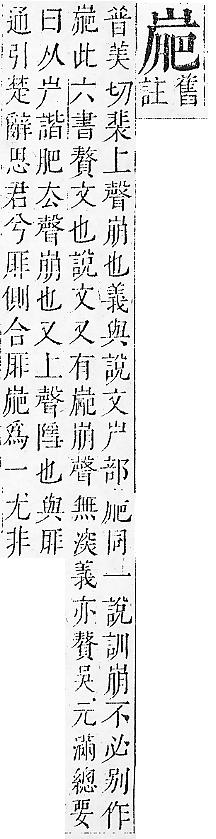 舊
註
普美切裴上聲崩也義與說文屵部同一說訓崩不必别作
此六書贅文也說文又有崩聲無深義亦贅吳元滿總要
曰从屵諧肥去聲崩也又上聲也與厞
通引楚辭思君兮厞側合厞爲一尤非